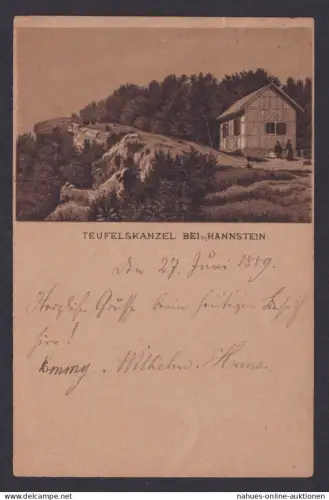 TEUFELSKANZEL BEI HANNSTEIN
Den 27. Juni 1889.
Herzliche Grüsse beim heutigen Besuch
hier!
Emmy. Wilhelm. Hans.
© nahues-online-auctions / www.delcampe.net